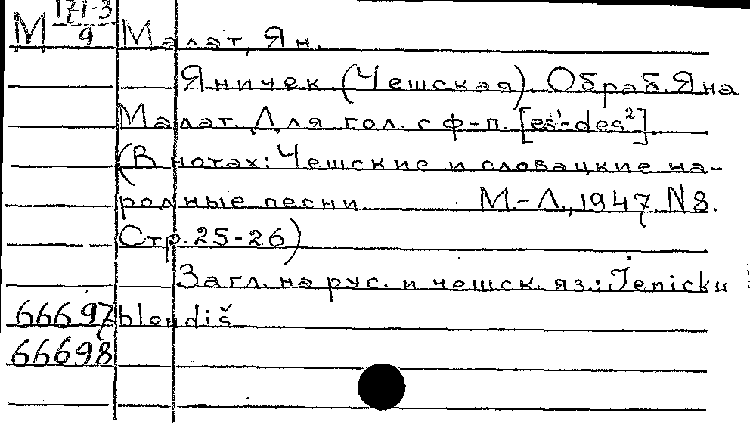 М 171-3/9 Малат, Ян.
Яничек (Чешская). Обраб. Яна
Малат. Для гол. с ф-п. [es¹-des²].
(В нотах: Чешские и словацкие на-
родные песни. М.-Л., 1947. N 8.
Стр. 25-26)
Загл. на рус. и чешск. яз.: Jenicku
66697 blondiš
66698